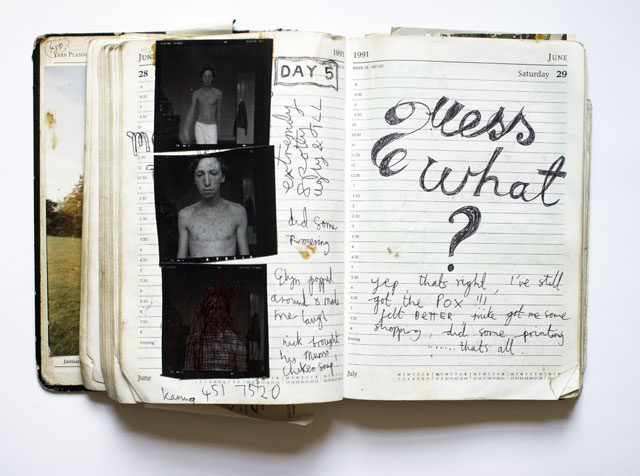 YEAR PLANN
JUNE
1991
28
DAY 5
extremely
spotty
ugly & ILL
did some
around & make
me laugh
nick brought
his Mums
chicken soup
June
451 7520
Januar
1991
JUNE
Saturday 29
guess
what
?
yep, thats right, I've still
got the POX !!!
felt BETTER mike got me some
shopping, did some printing
......thats all.
July